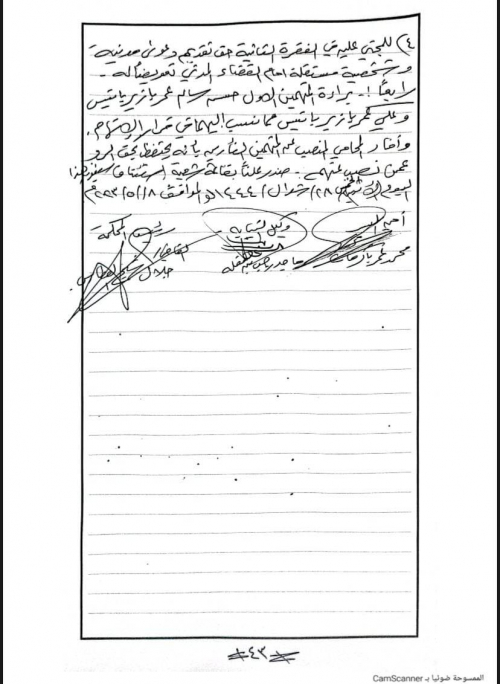 ٤) للمجني عليه في الفقرة الثانية حق تقديم دعوى مدنية
وشخصية مستقلة امام القضاء المدني تعويضاً له -
رابعاً :- براءة المتهمين الاول حسن سالم عمر بازير باتيس
وعلي عمر بازير باتيس مما نسب اليهما في قرار الاتهام.
وأفاد المحامي المنصب عن المتهمين الفارين بأنه يحتفظ بحق الرد
عمن نصب عنهم - صدر علناً بقاعة شعبة استئناف هذا
اليوم الاثنين ٢٨/شوال/١٤٤٤هـ الموافق ١٨/٥/٢٠٢٣م
أمين السر وكيل النيابة رئيس المحكمة
محمد القاضي/
جلال
٤٣
الممسوحة ضوئيا بـ CamScanner